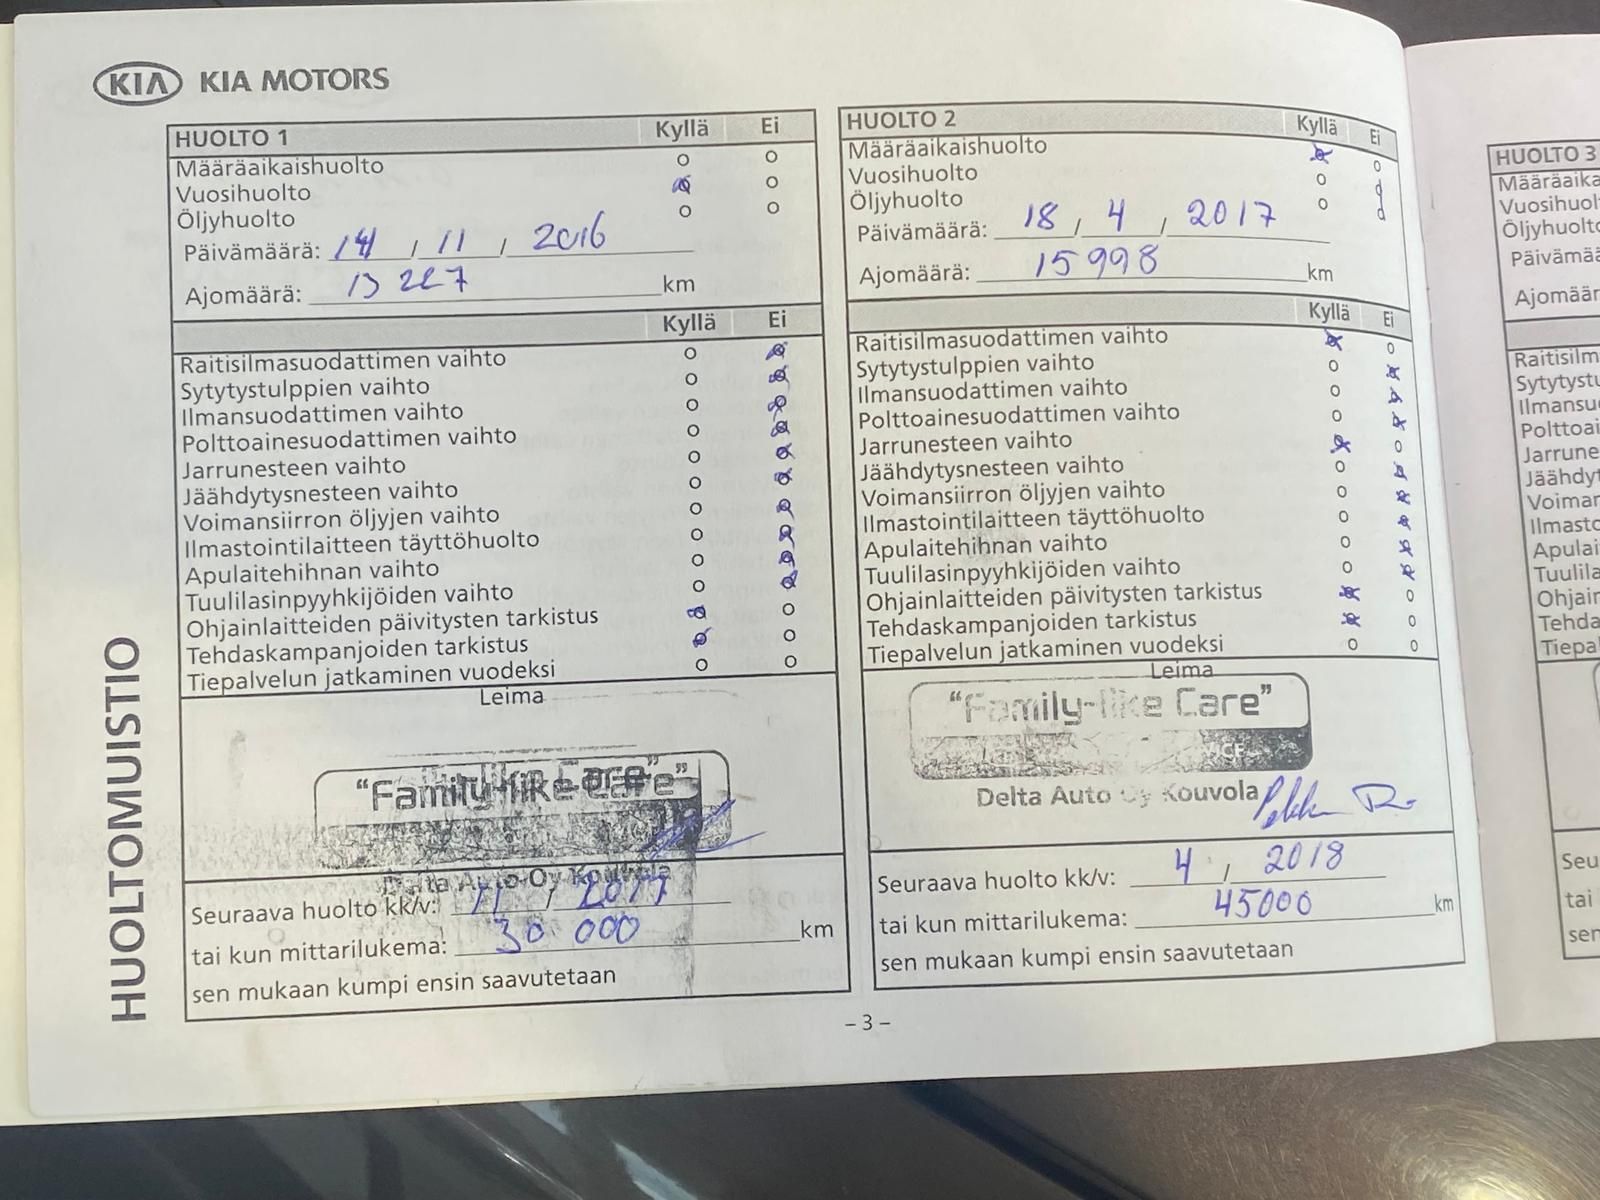 KIA KIA MOTORS
HUOLTOMUISTIO
HUOLTO 1 Kyllä Ei
Määräaikaishuolto
Vuosihuolto
Öljyhuolto
Päivämäärä: 14 / 11 / 2016
Ajomäärä: 13 227 km
Kyllä Ei
Raitisilmasuodattimen vaihto
Sytytystulppien vaihto
Ilmansuodattimen vaihto
Polttoainesuodattimen vaihto
Jarrunesteen vaihto
Jäähdytysnesteen vaihto
Voimansiirron öljyjen vaihto
Ilmastointilaitteen täyttöhuolto
Apulaitehihnan vaihto
Tuulilasinpyyhkijöiden vaihto
Ohjainlaitteiden päivitysten tarkistus
Tehdaskampanjoiden tarkistus
Tiepalvelun jatkaminen vuodeksi
Leima
"Family-like Care"
Delta Auto Oy Kouvola
Seuraava huolto kk/v: 11 / 2017
tai kun mittarilukema: 30 000 km
sen mukaan kumpi ensin saavutetaan
HUOLTO 2 Kyllä Ei
Määräaikaishuolto
Vuosihuolto
Öljyhuolto
Päivämäärä: 18 / 4 / 2017
Ajomäärä: 15 998 km
Kyllä Ei
Raitisilmasuodattimen vaihto
Sytytystulppien vaihto
Ilmansuodattimen vaihto
Polttoainesuodattimen vaihto
Jarrunesteen vaihto
Jäähdytysnesteen vaihto
Voimansiirron öljyjen vaihto
Ilmastointilaitteen täyttöhuolto
Apulaitehihnan vaihto
Tuulilasinpyyhkijöiden vaihto
Ohjainlaitteiden päivitysten tarkistus
Tehdaskampanjoiden tarkistus
Tiepalvelun jatkaminen vuodeksi
Leima
"Family-like Care"
Delta Auto Oy Kouvola
Seuraava huolto kk/v: 4 / 2018
tai kun mittarilukema: 45000 km
sen mukaan kumpi ensin saavutetaan
– 3 –
HUOLTO 3
Määräaika
Vuosihuol
Öljyhuolto
Päivämää
Ajomäär
Raitisilm
Sytytystu
Ilmansu
Polttoai
Jarrune
Jäähdyt
Voiman
Ilmasto
Apulai
Tuulila
Ohjain
Tehda
Tiepal
Seu
tai
sen